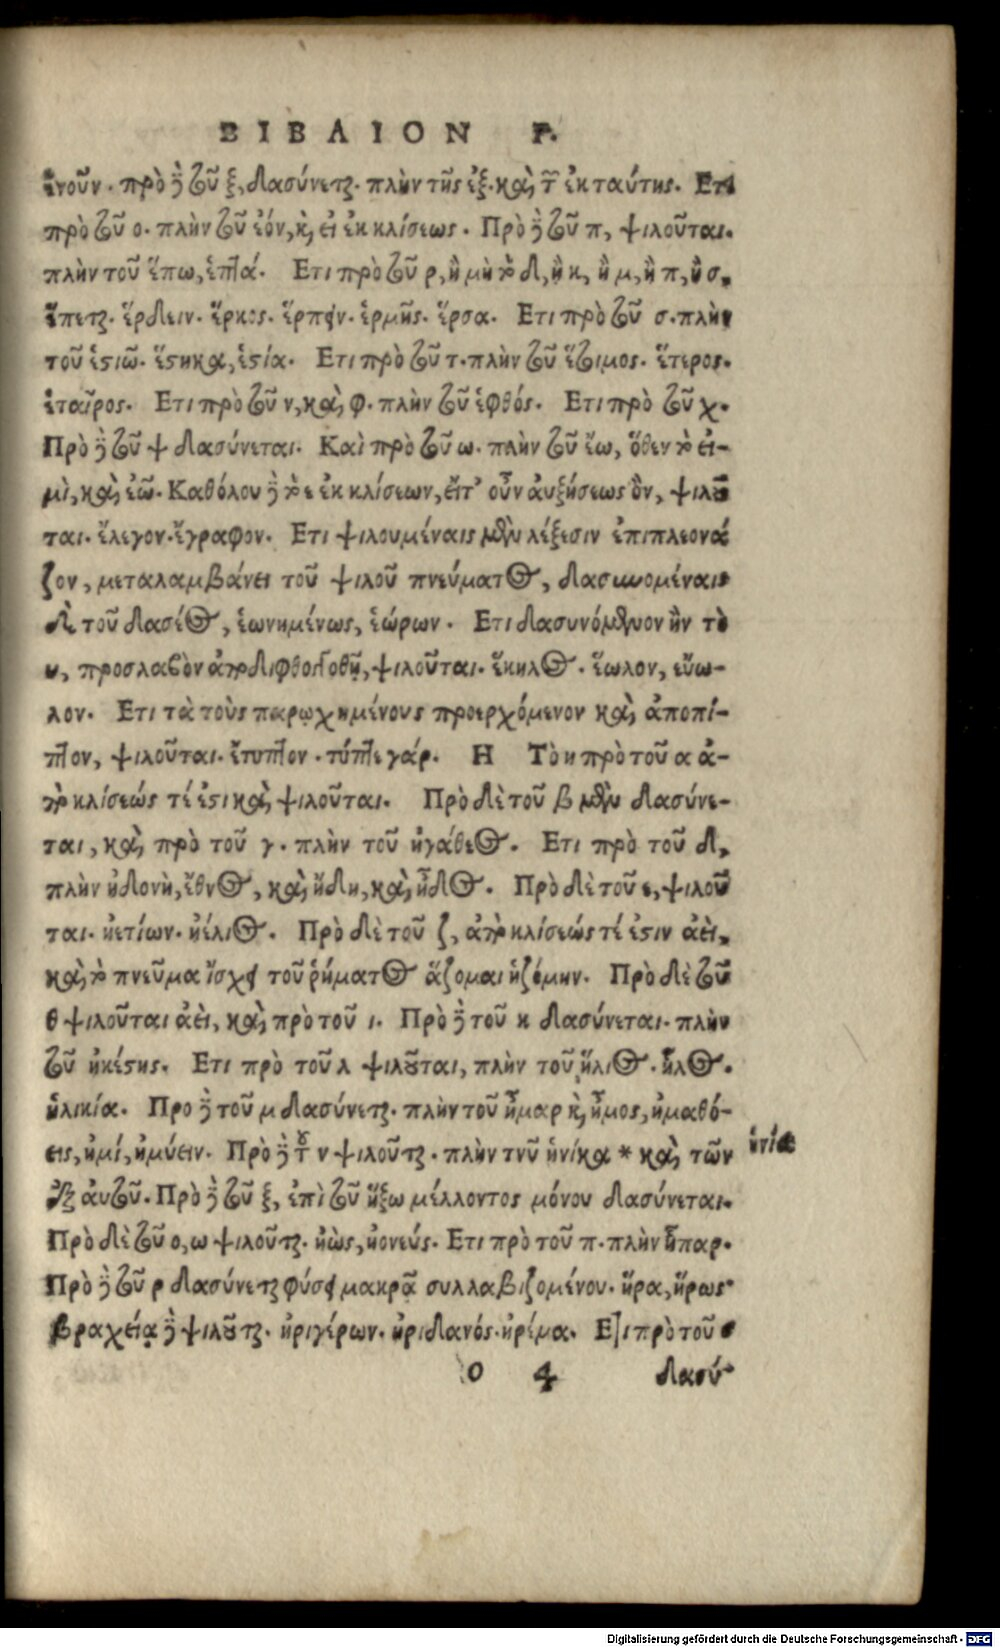 ΒΙΒΛΙΟΝ Γ.
ἑνοῦν. πρὸ δὲ τοῦ ξ, δασύνεται. πλὴν τῆς ἐξ. καὶ τῶν ἐκ ταύτης. Ετι
πρὸ τοῦ ο. πλὴν τοῦ ἐόν, καὶ εἰ ἐκ κλίσεως. Πρὸ δὲ τοῦ π, ψιλοῦται.
πλὴν τοῦ ἕπω, ἑπτά. Ετι πρὸ τοῦ ρ, ἢ μὴ τὸ δ, ἢ κ, ἢ μ, ἢ π, ἢ σ,
ἕπεται. ἕρδειν. ἕρκος. ἕρπειν. ἑρμῆς. ἕρσα. Ετι πρὸ τοῦ σ. πλὴν
τοῦ ἑστιῶ. ἕστηκα, ἑστία. Ετι πρὸ τοῦ τ. πλὴν τοῦ ἕτοιμος. ἕτερος.
ἑταῖρος. Ετι πρὸ τοῦ υ, καὶ φ. πλὴν τοῦ ἑφθός. Ετι πρὸ τοῦ χ.
Πρὸ δὲ τοῦ ψ δασύνεται. Καὶ πρὸ τοῦ ω. πλὴν τοῦ ἔω, ὅθεν τὸ εἰ-
μὶ, καὶ ἐῶ. Καθόλου δὲ τὸ ε ἐκ κλίσεων, εἴτ' οὖν αὐξήσεως ὂν, ψιλοῦ
ται. ἔλεγον. ἔγραφον. Ετι ψιλουμέναις μὲν λέξεσιν ἐπιπλεονά
ζον, μεταλαμβάνει τοῦ ψιλοῦ πνεύματος, δασυνομέναις
δὲ τοῦ δασέος, ἑωνημένως, ἑώρων. Ετι δασυνόμενον ἢν τὸ
υ, προσλαβὸν ἀπὸ διφθόγγου, ψιλοῦται. ἕκηλος. ἕωλον, εὔω-
λον. Ετι τὰ τοὺς παρῳχημένους προερχόμενον καὶ ἀποπί-
πτον, ψιλοῦται. ἔτυπτον. τύπτε γάρ. Η Τὸ η πρὸ τοῦ α ἀ-
πὸ κλίσεώς τέ ἐστι καὶ ψιλοῦται. Πρὸ δὲ τοῦ β μὲν δασύνε-
ται, καὶ πρὸ τοῦ γ. πλὴν τοῦ ἠγάθεος. Ετι πρὸ τοῦ δ,
πλὴν ἡδονὴ, ἔθνος, καὶ ἤδη, καὶ ἦδος. Πρὸ δὲ τοῦ ε, ψιλοῦ
ται. ἠετίων. ἠέλιος. Πρὸ δὲ τοῦ ζ, ἀπὸ κλίσεώς τέ ἐστιν ἀεὶ,
καὶ τὸ πνεῦμα ἴσχει τοῦ ῥήματος ἅζομαι ἡζόμην. Πρὸ δὲ τοῦ
θ ψιλοῦται ἀεὶ, καὶ πρὸ τοῦ ι. Πρὸ δὲ τοῦ κ δασύνεται. πλὴν
τοῦ ἠκέστης. Ετι πρὸ τοῦ λ ψιλοῦται, πλὴν τοῦ ἥλιος. ἧλος.
ἡλικία. Προ δὲ τοῦ μ δασύνεται. πλὴν τοῦ ἦμαρ καὶ ἦμος, ἠμαθό-
εις, ἠμί, ἠμύειν. Πρὸ δὲ τοῦ ν ψιλοῦται. πλὴν τοῦ ἡνίκα * καὶ τῶν
ἐξ αὐτοῦ. Πρὸ δὲ τοῦ ξ, ἐπὶ τοῦ ἥξω μέλλοντος μόνου δασύνεται.
Πρὸ δὲ τοῦ ο, ω ψιλοῦται. ἠὼς, ἠονεύς. Ετι πρὸ τοῦ π. πλὴν ἧπαρ.
Πρὸ δὲ τοῦ ρ δασύνεται φύσει μακρᾷ συλλαβιζομένου. ἥρα, ἥρως.
βραχείᾳ δὲ ψιλοῦται. ἠριγέρων. ἠριδανός. ἠρέμα. Ετι πρὸ τοῦ σ
ο 4 δασύ-
ἡνία
Digitalisierung gefördert durch die Deutsche Forschungsgemeinschaft - DFG